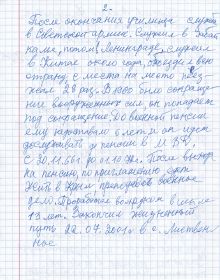 2.
После окончания училища служба
в Советской армии. Служил в Забай
кале, потом Ленинграде, служил
в Китае около года, объездил всю
страну, с места на место переез
жал 28 раз. В 1960 было сокраще
ние вооруженных сил, он попадает
под сокращение, до военной пенсии
ему не хватало 6 лет он идет
дослуживать до пенсии в МВД,
с 20.11.61г. до 01.10.
После выхода
на пенсию, по приглашению едет
жить в Крым преподавать военное
дело. Проработал военруком в школе
13 лет. Закончил жизненный
путь 22.07.2001г в с. Листвен
ное